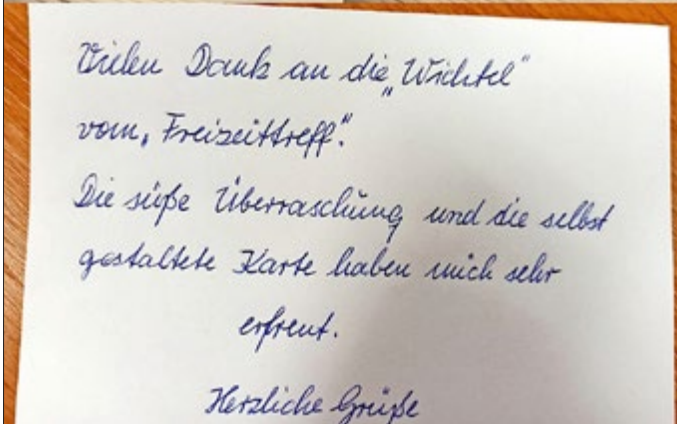 Vielen Dank an die „Wichtel“
vom „Freizeittreff“.
Die süße Überraschung und die selbst
gestaltete Karte haben mich sehr
erfreut.
Herzliche Grüße